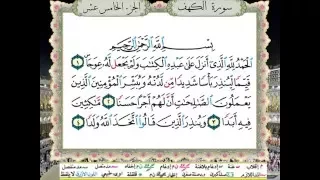 سورة الكهف الجزء الخامس عشر
بِسْمِ ٱللَّهِ ٱلرَّحْمَٰنِ ٱلرَّحِيمِ
ٱلْحَمْدُ لِلَّهِ ٱلَّذِىٓ أَنزَلَ عَلَىٰ عَبْدِهِ ٱلْكِتَٰبَ وَلَمْ يَجْعَل لَّهُۥ عِوَجَا ۜ ١
قَيِّمًا لِّيُنذِرَ بَأْسًا شَدِيدًا مِّن لَّدُنْهُ وَيُبَشِّرَ ٱلْمُؤْمِنِينَ ٱلَّذِينَ
يَعْمَلُونَ ٱلصَّٰلِحَٰتِ أَنَّ لَهُمْ أَجْرًا حَسَنًا ٢ مَّٰكِثِينَ
فِيهِ أَبَدًا ٣ وَيُنذِرَ ٱلَّذِينَ قَالُوا۟ ٱتَّخَذَ ٱللَّهُ وَلَدًا ٤